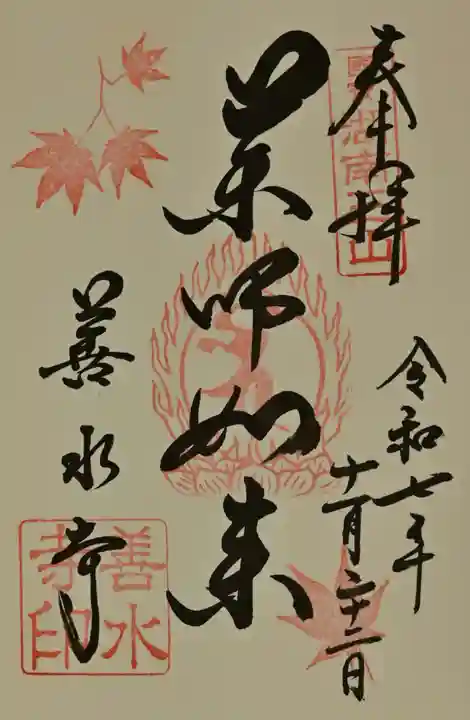 奉拝
令和七年
十一月二十二日
湖南
山
薬師如来
善水寺
善水
寺印